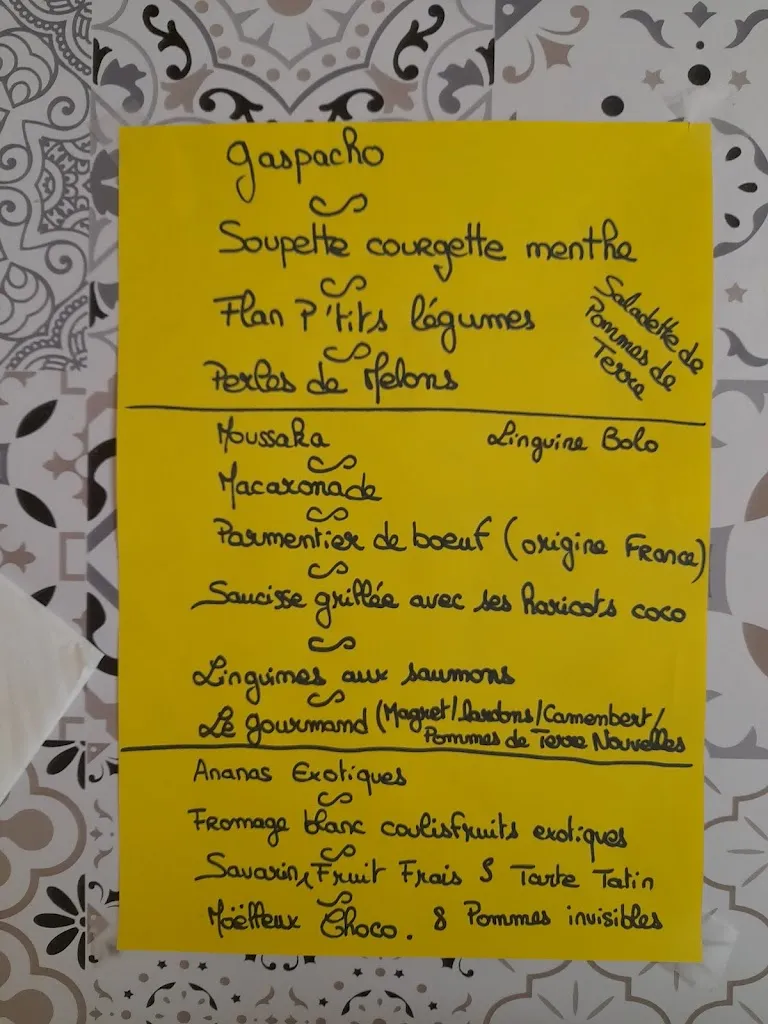 Gaspacho
Soupette courgette menthe
Flan P'tits légumes
Saladette de
Pommes de
Terre
Perles de Melons
Moussaka
Linguine Bolo
Macaronade
Parmentier de boeuf (origine France)
Saucisse grillée avec ses haricots coco
Linguines aux saumons
Le gourmand (Magret/lardons/Camembert/
Pommes de Terre Nouvelles
Ananas Exotiques
Fromage blanc coulis fruits exotiques
Savarin, Fruit Frais S Tarte Tatin
Moëlleux Choco. 8 Pommes invisibles